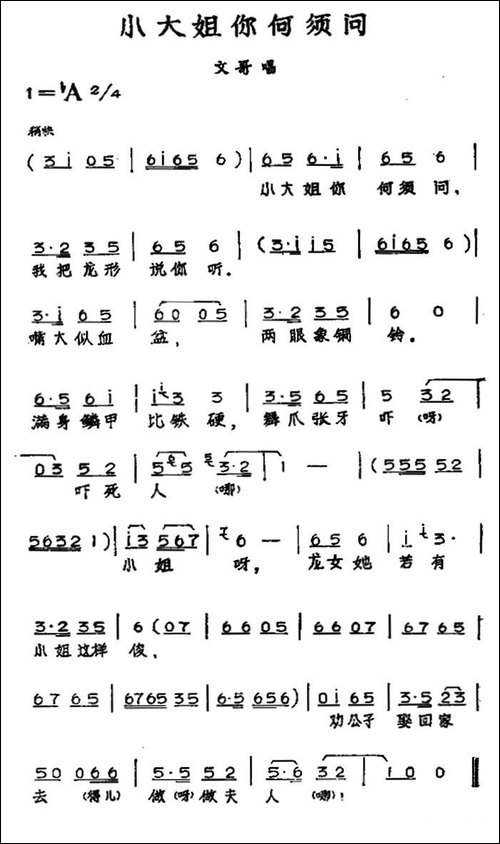 小大姐你何须问
文哥唱
1=♭A 2/4
稍快
(3i 05 | 6i65 6) | 65 6·i | 65 6 |
小大姐你 何须问,
3·2 35 | 65 6 | (3·i i5 | 6i65 6) |
我把龙形 说你听。
3·i 65 | 60 05 | 3·2 35 | 6 0 |
嘴大似血 盆, 两眼象铜 铃。
6·5 6i | i3 3 | 3·5 65 | 5 32 |
满身鳞甲 比铁硬, 舞爪张牙 吓(呀)
03 52 | 55 3·2 | 1 — | (555 52 |
吓死人(哪)
5632 1) | i3 567 | 6 — | 65 6 | i 3· |
小姐 呀, 龙女她 若有
3·2 35 | 6 (07 | 66 05 | 66 07 | 67 65 |
小姐这样 俊,
67 65 | 6765 35 | 6·5 656) | 0i 65 | 3·5 23 |
劝公子 娶回家
50 066 | 5·5 52 | 5·6 32 | 10 0 ‖
去 (得儿) 做(呀)做夫 人(哪)!